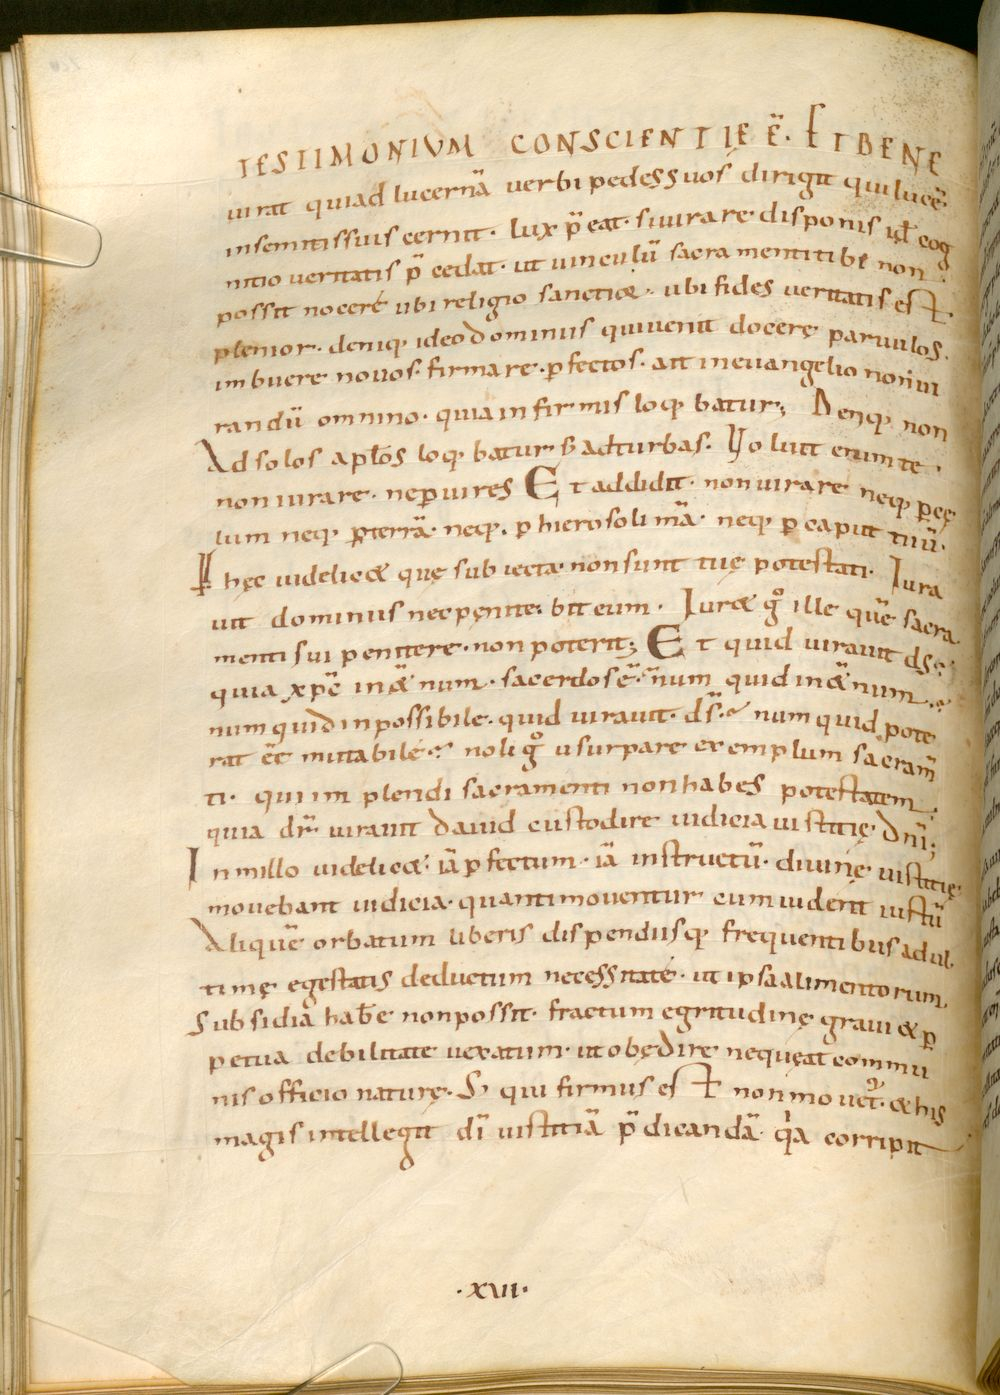 TESTIMONIVM CONSCIENTIĘ Ē. ET BENE
iurat qui ad lucernā verbi pedes suos dirigit qui lucē
in semitis suis cernit. lux p̄eat. si iurare disponis id ē cog
nitio veritatis p̄cedat. ut vinculū sacramenti tibi non
possit nocere ubi religio sanctior. ubi fides veritatis est
plenior. deniq; ideo dominus qui venit docere parvulos.
imbuere novos. firmare perfectos. ait in evangelio non iu
randū omnino. quia infirmis loq;batur; Denq; non
Ad solos apłos loq;batur s; ad turbas. Noluit enim te
non iurare. ne periures Et addidit. non iurare neq; per cę
lum neq; per terrā. neq; p hierosolimā. neq; per caput tuū.
Per hęc videlicet quę subiecta non sunt tuę potestati. Iura
vit dominus nec pęnitebit eum. Iuret g̊ ille quē sacra
menti sui penitere non poterit; Et quid iuravit ds̄?
quia xp̄c in ætnum. sacerdos ē. num quid in ætnum.
num quid inpossibile. quid iuravit. ds̄. num quid pote
rat ēē mutabile? noli g̊ usurpare exemplum sacram̄
ti. qui implendi sacramenti non habes potestatem.
quia dr̄ iuravit david custodire iudicia iustitię dn̄i;
In illo videlicet iā perfectum. iā instructū. divinę iustitię
movebant iudicia. quanti moventur cum viderit iustū
Aliquē orbatum liberis dispendiisq; frequentibus ad ul
timę egestatis deductum necessitatē. ut ipsa alimentorum
Subsidia habēe non possit. fractum egritudinę gravi & p
petua debilitate vexatum. ut obędire nequeat commu
nis officio naturę. S; qui firmus est non movet̄. & his
magis intellegit dī iustitiā p̄dicandā. q̇a corripit
.xvii.